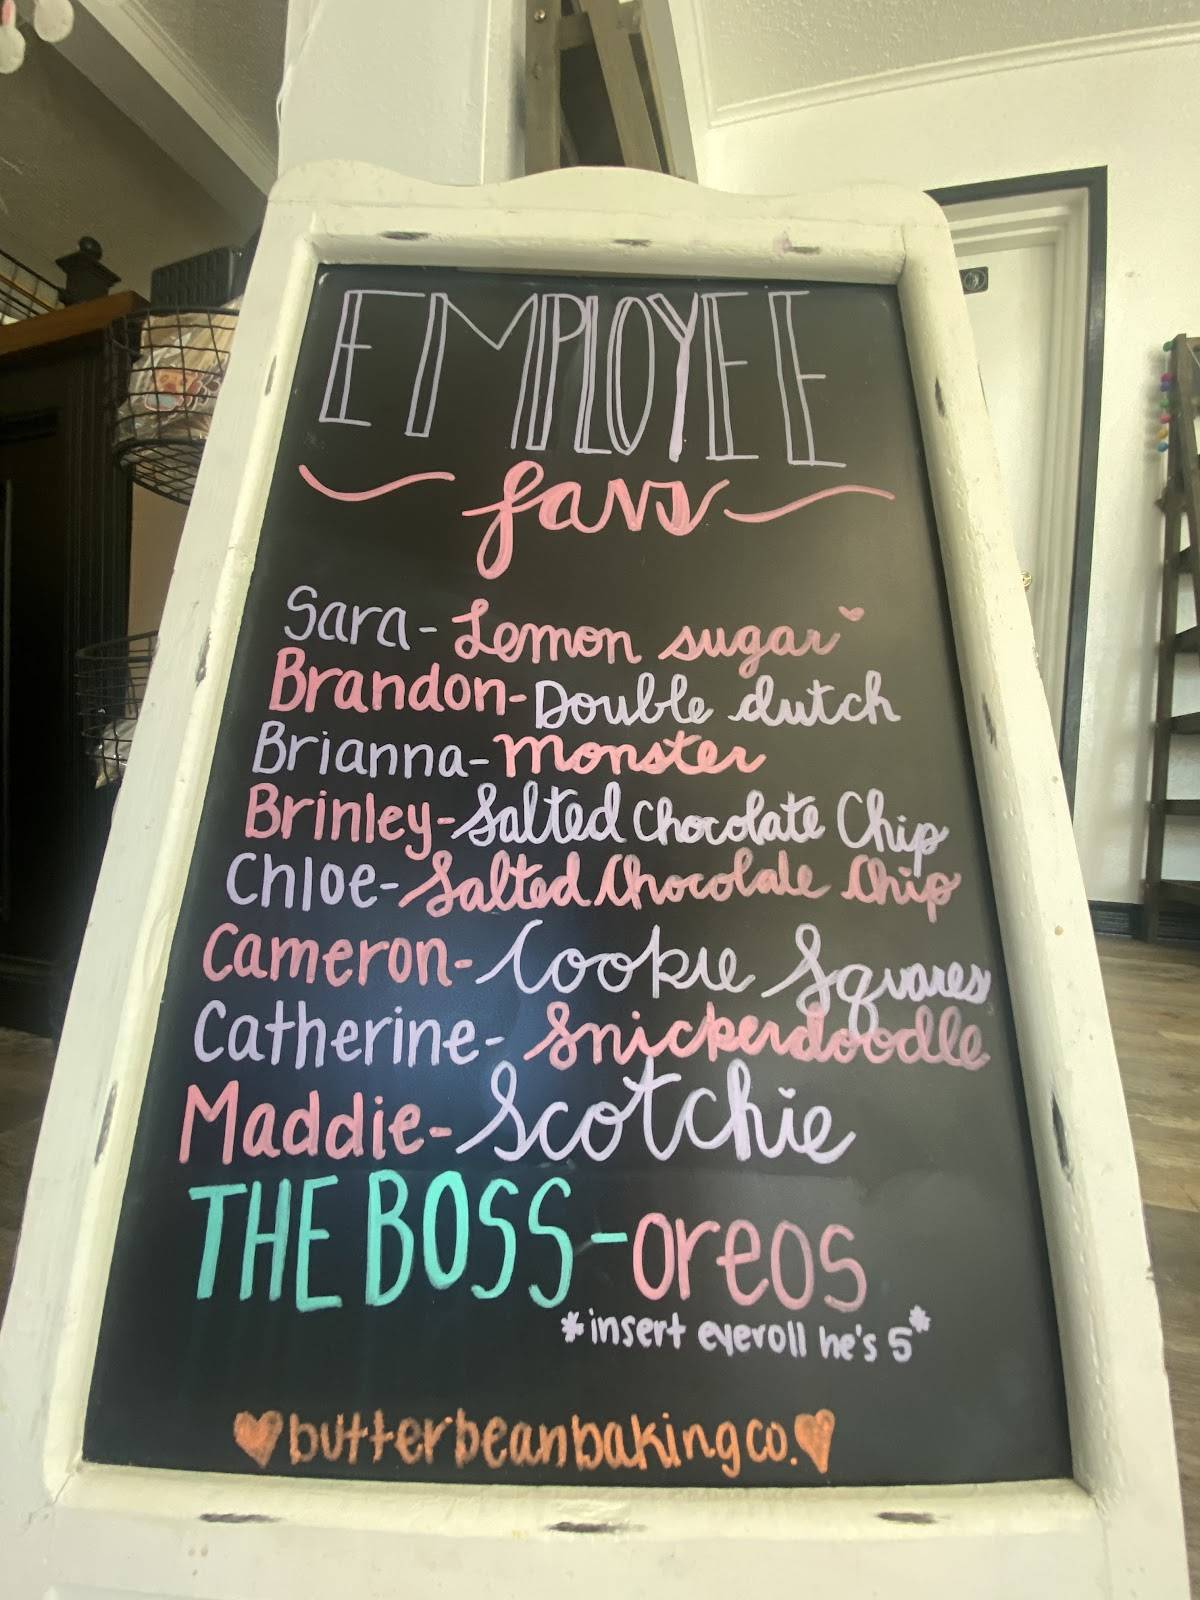 EMPLOYEE
favs
Sara- Lemon sugar
Brandon- Double dutch
Brianna- Monster
Brinley- Salted Chocolate Chip
Chloe- Salted Chocolate Chip
Cameron- Cookie Squares
Catherine- Snickerdoodle
Maddie- Scotchie
THE BOSS - oreos
*insert eyeroll he's 5*
butterbeanbakingco.